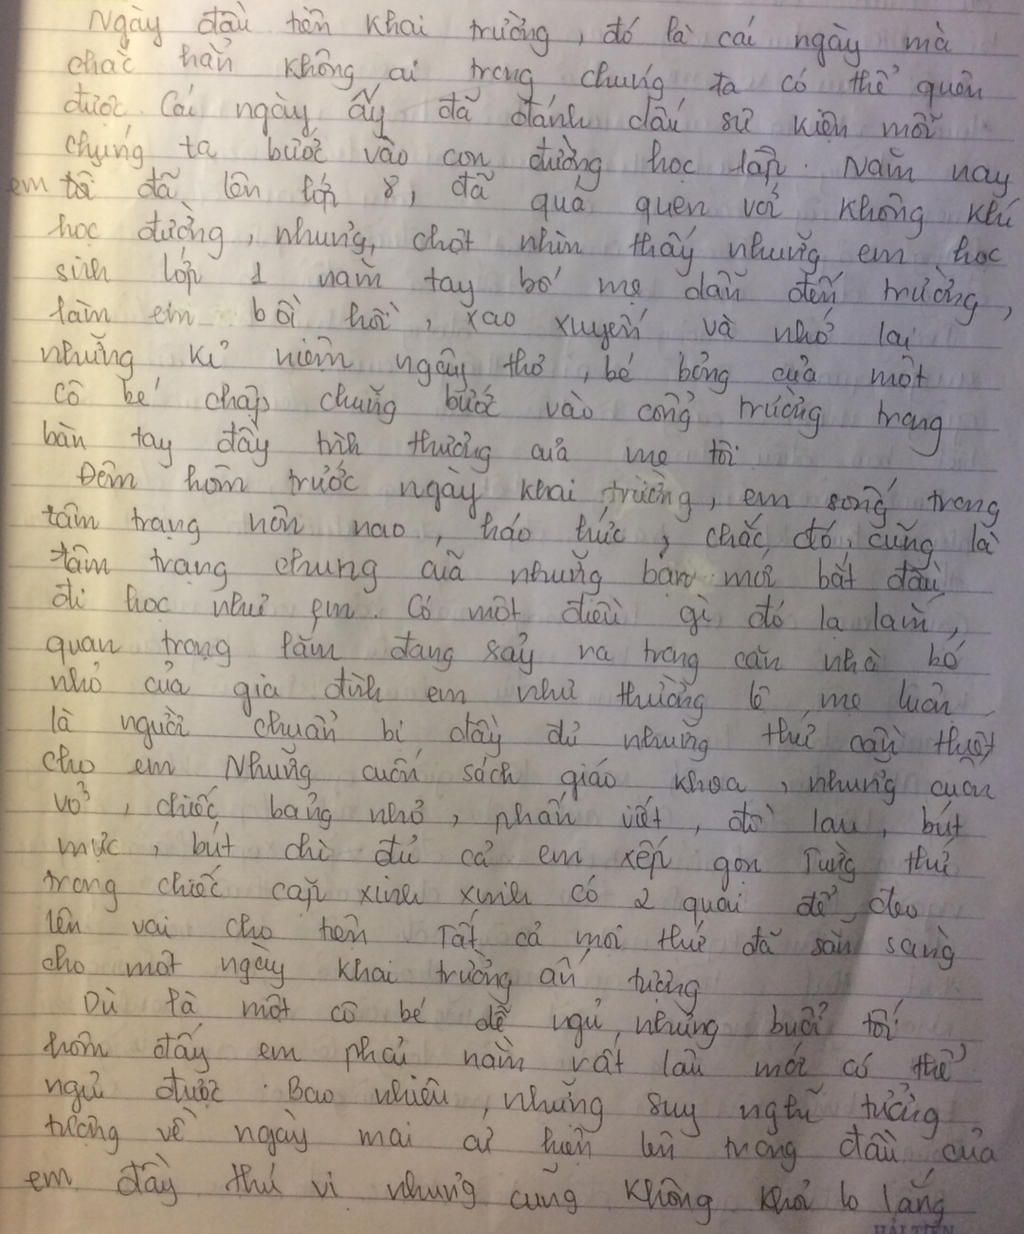 Ngày đầu tiên khai trường, đó là cái ngày mà
chắc hẳn không ai trong chúng ta có thể quên
được. Cái ngày ấy đã đánh dấu sự kiện mỗi
chúng ta bước vào con đường học tập. Năm nay
em tô đã lên lớp 8, đã quá quen với không khí
học đường, nhưng, chợt nhìn thấy những em học
sinh lớp 1 nắm tay bố mẹ dẫn đến trường,
làm em bồi hồi, xao xuyến và nhớ lại
những kỉ niệm ngây thơ, bé bỏng của một
cô bé chập chững bước vào cổng trường trong
bàn tay đầy tình thương của mẹ tôi
Đêm hôm trước ngày khai trường, em sống trong
tâm trạng nôn nao, háo hức, chắc đó cũng là
tâm trạng chung của những bạn mới bắt đầu
đi học như em. Có một điều gì đó lạ lắm,
quan trọng lắm đang sảy ra trong căn nhà bé
nhỏ của gia đình em như thường lệ mẹ luôn
là người chuẩn bị đầy đủ những thứ cần thiết
cho em Những cuốn sách giáo khoa, những cuốn
vở, chiếc bảng nhỏ, phấn viết, đồ lau, bút
mực, bút chì đủ cả em xếp gọn Từng thứ
trong chiếc cặp xinh xinh có 2 quai để đeo
lên vai cho tiện Tất cả mọi thứ đã sẵn sàng
cho một ngày khai trường ấn tượng
Dù là một cô bé dễ ngủ, nhưng buổi tối
hôm đấy em phải nằm rất lâu mới có thể
ngủ được. Bao nhiêu, những suy nghĩ tưởng
tượng về ngày mai cứ hiện lên trong đầu của
em đầy thú vị nhưng cũng không khỏi lo lắng
HẢI TIẾN